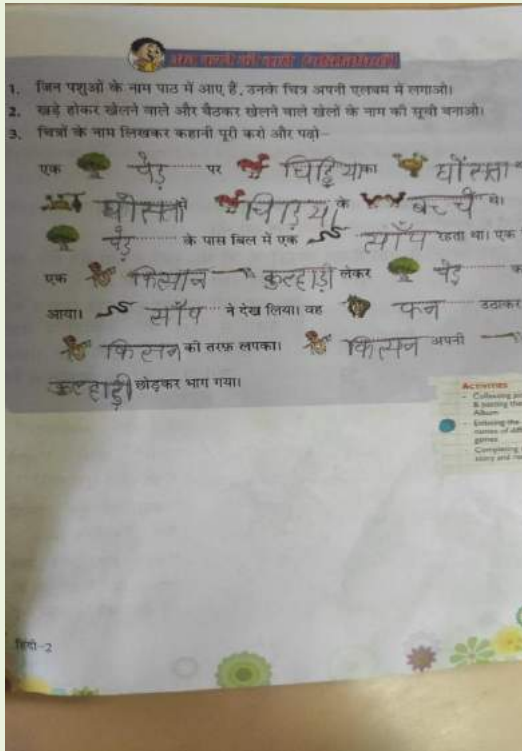 1. जिन पशुओं के नाम पाठ में आए हैं, उनके चित्र अपनी एलबम में लगाओ।
2. खड़े होकर खेलने वाले और बैठकर खेलने वाले खेलों के नाम की सूची बनाओ।
3. चित्रों के नाम लिखकर कहानी पूरी करो और पढ़ो–
एक पेड़ पर चिड़िया का घोंसला
घोंसलों में चिड़िया के बच्चे थे।
पेड़ के पास बिल में एक साँप रहता था। एक
एक किसान कुल्हाड़ी लेकर पेड़
आया। साँप ने देख लिया। वह फन उठाकर
किसान की तरफ़ लपका। किसान अपनी
कुल्हाड़ी छोड़कर भाग गया।
ACTIVITIES
- Collecting
& pasting the
Album
- Enlisting the
names of
games
- Completing
story and
हिंदी–2